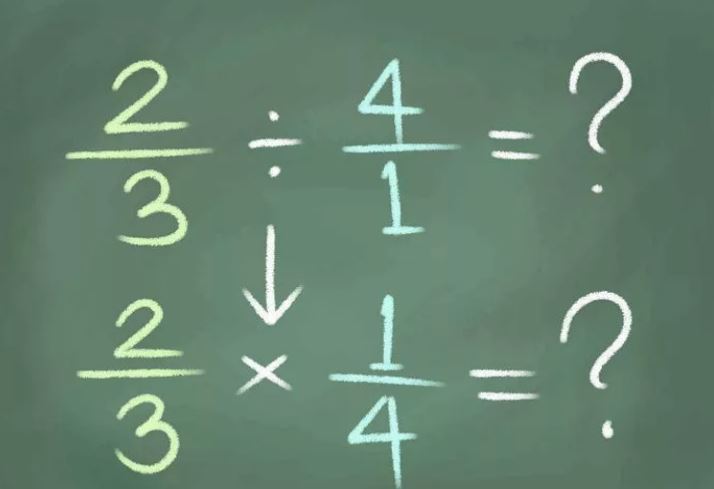 2/3 ÷ 4/1 = ?
↓
2/3 × 1/4 = ?